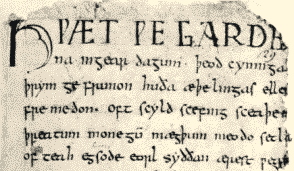 HÞÆT ÞE GARDE
na ingear dagum. þeod cyninga
þrym ge frunon huða æþelingas elle
fremedon. oft scyld scefing sceaþe
þreatum monegū mægþum meodo setla
of teah egsode eorl syððan ærest